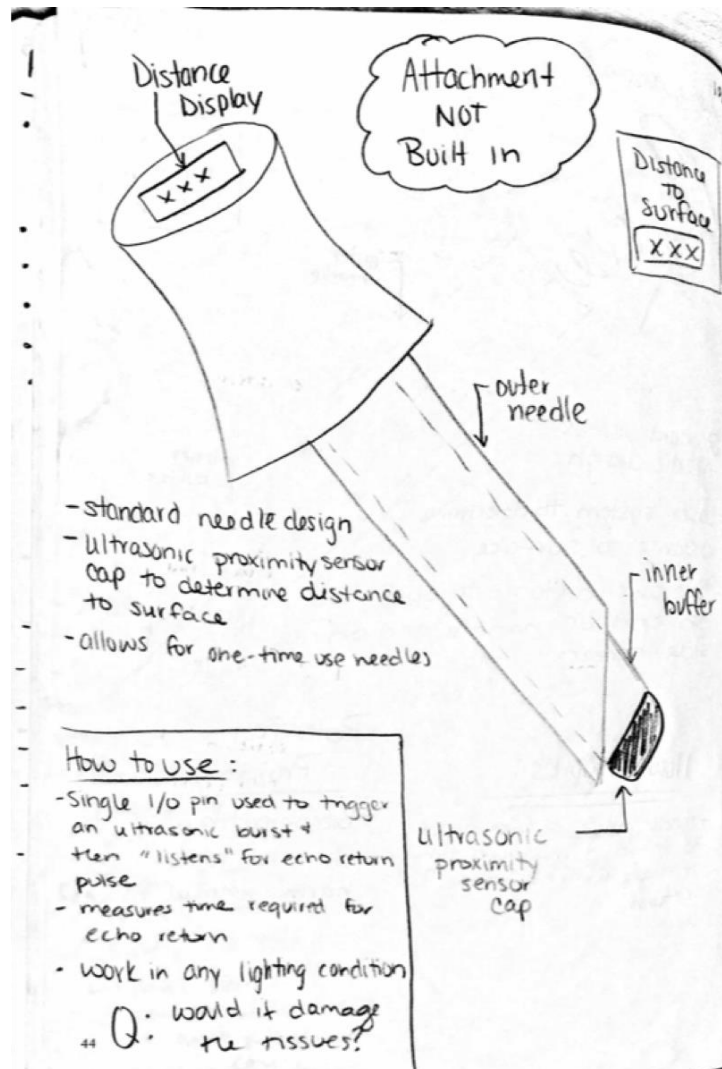 Distance
Display
XXX
Attachment
NOT
Built In
Distance
To
Surface
XXX
outer
needle
inner
buffer
- standard needle design
- ultrasonic proximity sensor
cap to determine distance
to surface
- allows for one-time use needles
How to use:
- Single I/O pin used to trigger
an ultrasonic burst &
then "listens" for echo return
pulse
- measures time required for
echo return
- work in any lighting condition
Q: would it damage
the tissues?
44
ultrasonic
proximity
sensor
cap